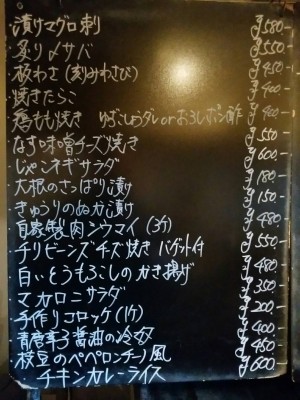 ・漬けマグロ刺 ¥580-
・炙り〆サバ ¥550-
・板わさ(刻みわさび) ¥450
・焼きたらこ ¥400
・鶏もも焼き ゆずこしょうダレorおろしポン酢 ¥400
・なす味噌チーズ焼き ¥550-
・じゃこネギサラダ ¥600-
・大根のさっぱり漬け ¥180
・きゅうりのぬか漬け ¥150
・自家製肉シウマイ(3ケ) ¥480
・チリビーンズチーズ焼き バゲット付 ¥550-
・白いとうもろこしのかき揚げ ¥480
・マカロニサラダ ¥350
・手作りコロッケ(1ケ) ¥200
・青唐辛子醤油の冷奴 ¥400
・枝豆のペペロンチーノ風 ¥450
・チキンカレーライス ¥600-